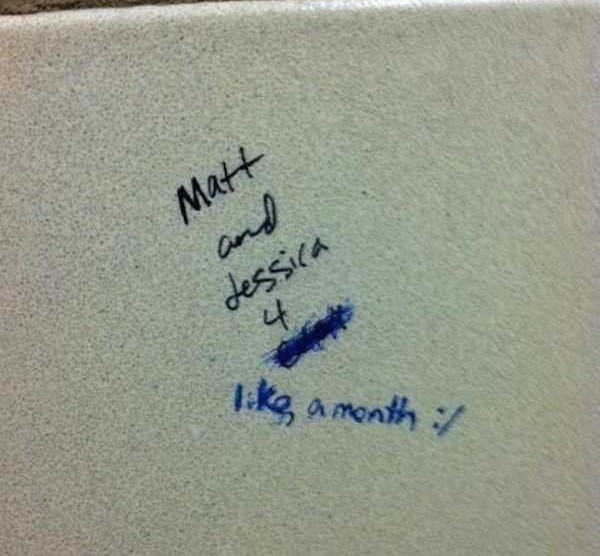 Matt
and
Jessica
4
like, a month :/